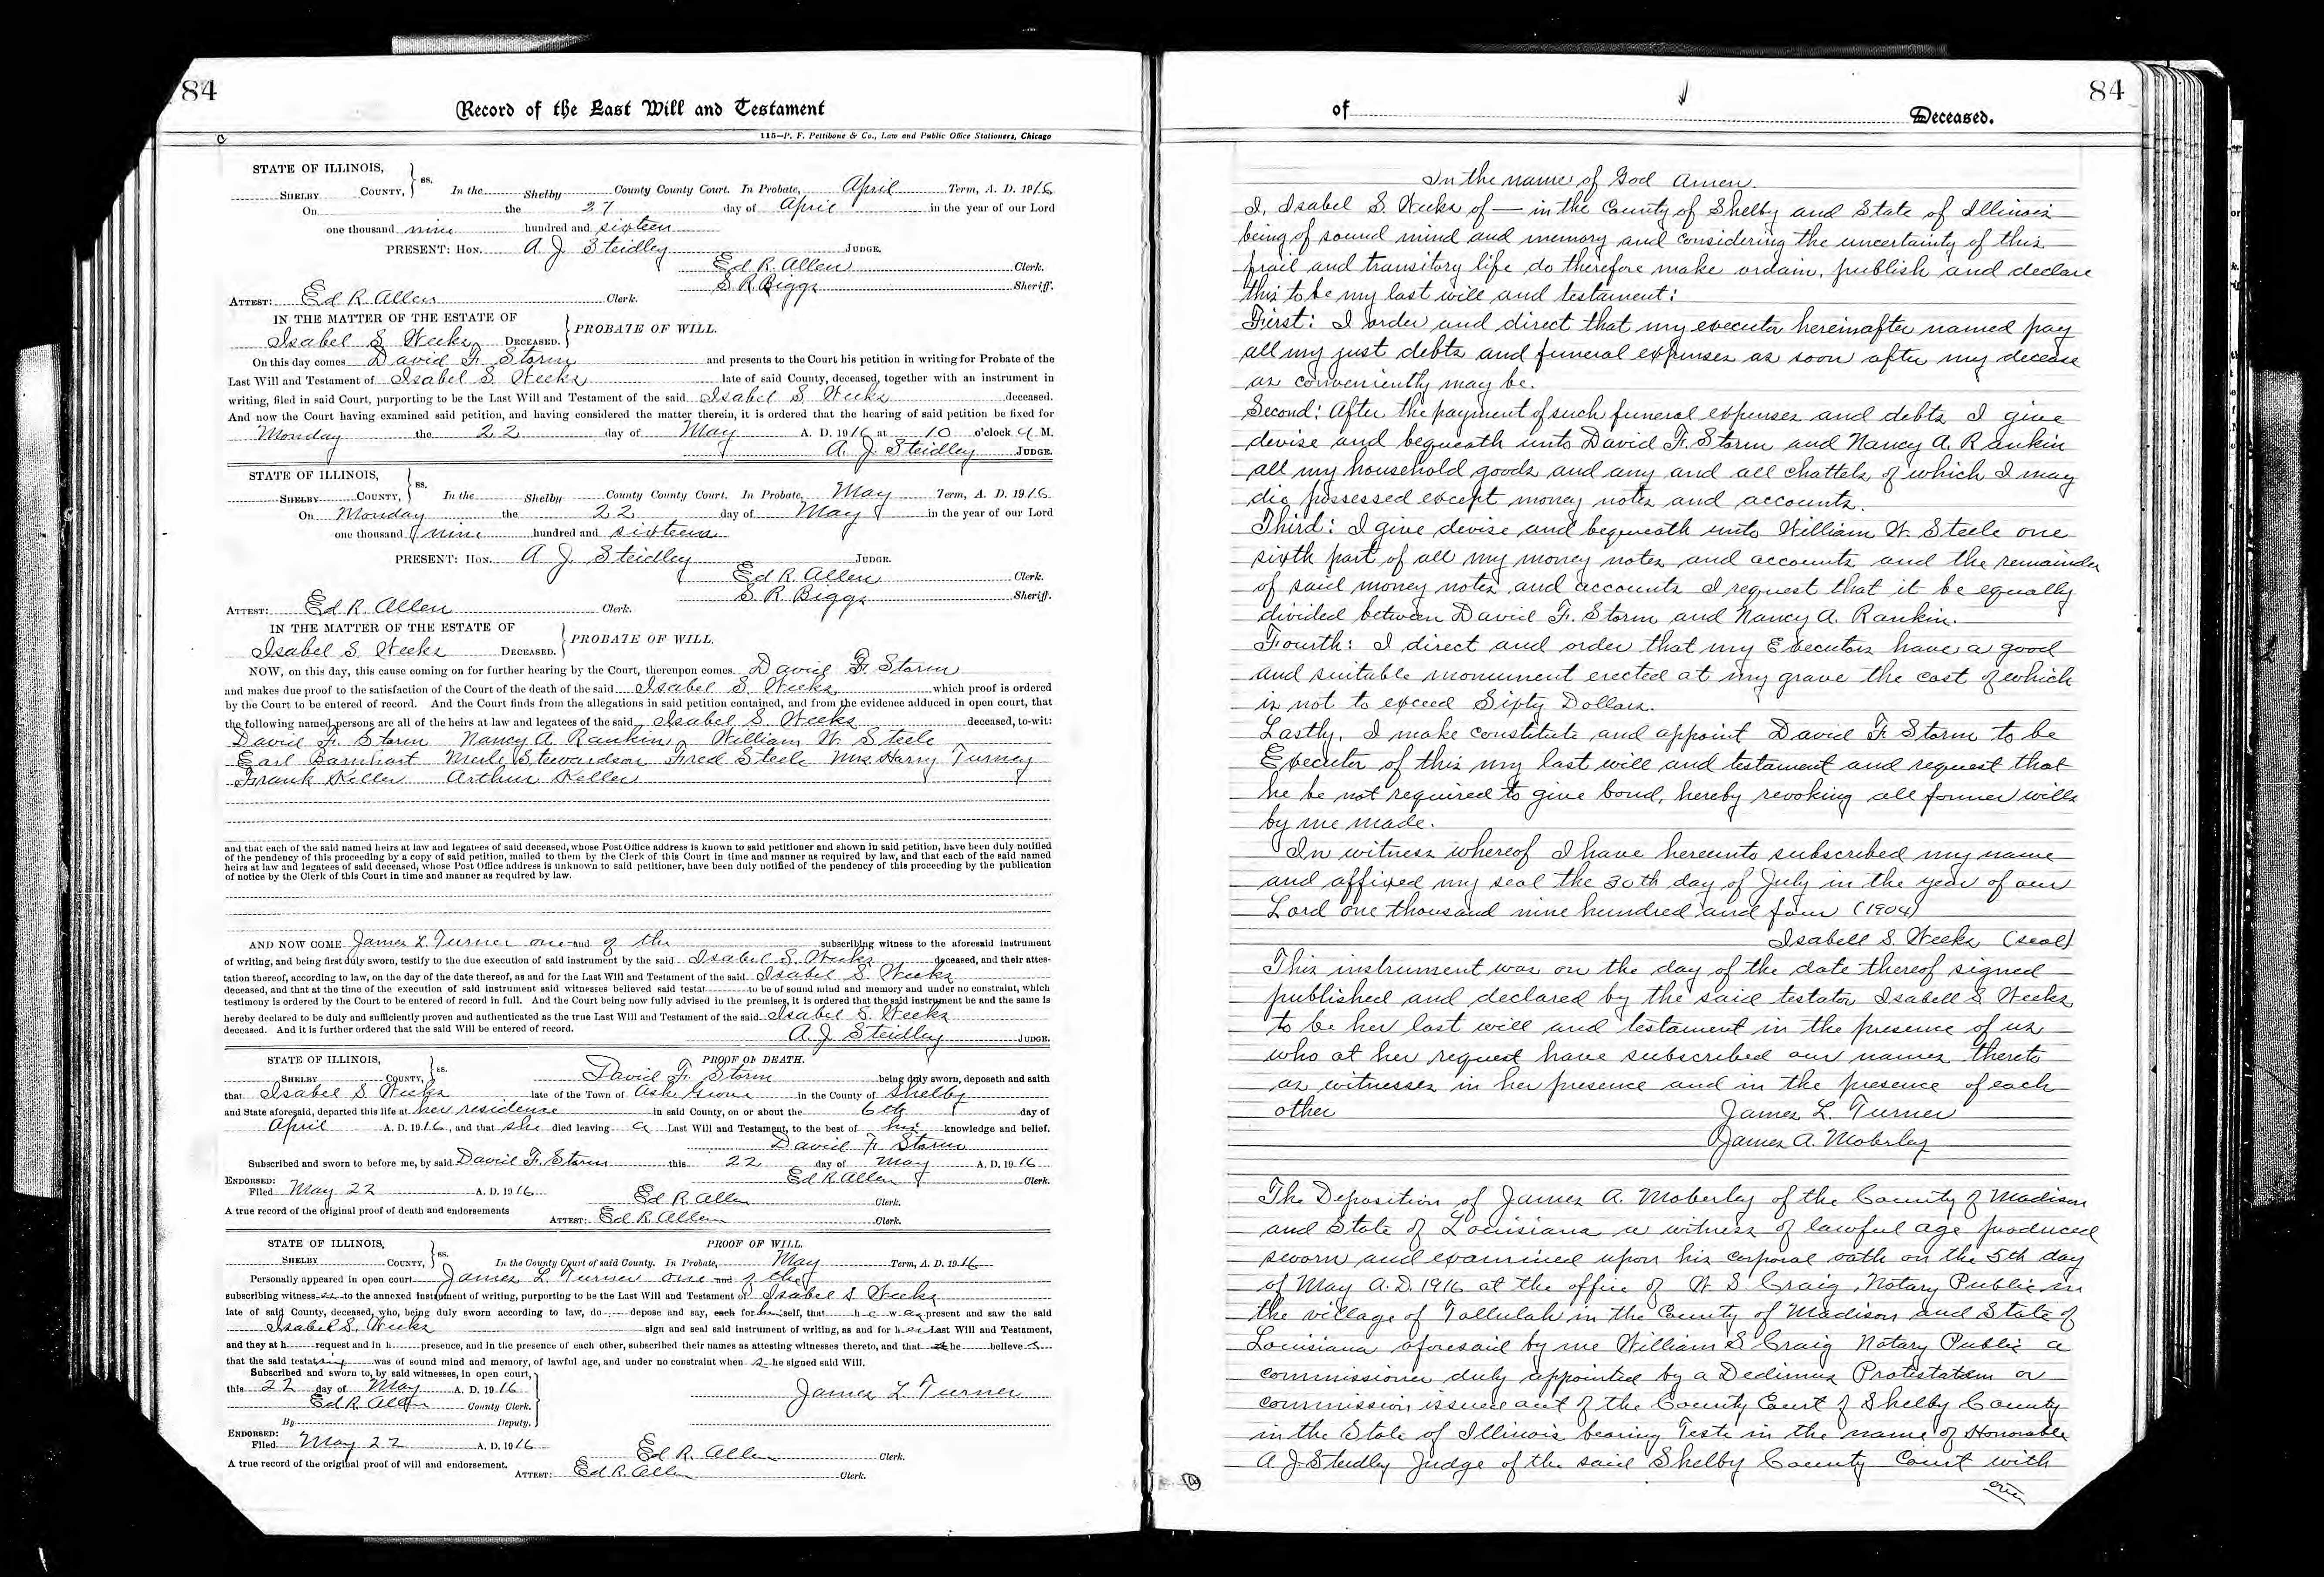 84
Record of the Last Will and Testament
115—P. F. Pettibone & Co., Law and Public Office Stationers, Chicago
STATE OF ILLINOIS,
SHELBY COUNTY, ss. In the Shelby County County Court. In Probate, April Term, A. D. 1916
On the 27 day of April in the year of our Lord
one thousand nine hundred and sixteen
PRESENT: HON. A J Steidley JUDGE.
Ed R. Allen Clerk.
S. R. Biggs Sheriff.
ATTEST: Ed R. Allen Clerk.
IN THE MATTER OF THE ESTATE OF
Isabel S. Weeks DECEASED. PROBATE OF WILL.
On this day comes David F. Storm and presents to the Court his petition in writing for Probate of the
Last Will and Testament of Isabel S. Weeks late of said County, deceased, together with an instrument in
writing, filed in said Court, purporting to be the Last Will and Testament of the said Isabel S. Weeks deceased.
And now the Court having examined said petition, and having considered the matter therein, it is ordered that the hearing of said petition be fixed for
Monday the 22 day of May A. D. 1916 at 10 o'clock a M.
A. J. Steidley JUDGE.
STATE OF ILLINOIS,
SHELBY COUNTY, ss. In the Shelby County County Court. In Probate, May Term, A. D. 1916
On Monday the 22 day of May in the year of our Lord
one thousand nine hundred and sixteen
PRESENT: HON. A J Steidley JUDGE.
Ed R. Allen Clerk.
S. R. Biggs Sheriff.
ATTEST: Ed R. Allen Clerk.
IN THE MATTER OF THE ESTATE OF
Isabel S. Weeks DECEASED. PROBATE OF WILL.
NOW, on this day, this cause coming on for further hearing by the Court, thereupon comes David F. Storm
and makes due proof to the satisfaction of the Court of the death of the said Isabel S. Weeks, which proof is ordered
by the Court to be entered of record. And the Court finds from the allegations in said petition contained, and from the evidence adduced in open court, that
the following named persons are all of the heirs at law and legatees of the said Isabel S. Weeks deceased, to-wit:
David F. Storm Nancy A. Rankin William W. Steele
Earl Barnhart Merle Stewardson Fred Steele Mrs Harry Turney
Frank Keller Arthur Keller
and that each of the said named heirs at law and legatees of said deceased, whose Post Office address is known to said petitioner and shown in said petition, have been duly notified
of the pendency of this proceeding by a copy of said petition, mailed to them by the Clerk of this Court in time and manner as required by law, and that each of the said named
heirs at law and legatees of said deceased, whose Post Office address is unknown to said petitioner, have been duly notified of the pendency of this proceeding by the publication
of notice by the Clerk of this Court in time and manner as required by law.
AND NOW COME James L. Turner one and of the subscribing witness to the aforesaid instrument
of writing, and being first duly sworn, testify to the due execution of said instrument by the said Isabel S. Weeks deceased, and their attes-
tation thereof, according to law, on the day of the date thereof, as and for the Last Will and Testament of the said Isabel S. Weeks
deceased, and that at the time of the execution of said instrument said witnesses believed said testat to be of sound mind and memory and under no constraint, which
testimony is ordered by the Court to be entered of record in full. And the Court being now fully advised in the premises, it is ordered that the said instrument be and the same is
hereby declared to be duly and sufficiently proven and authenticated as the true Last Will and Testament of the said Isabel S. Weeks
deceased. And it is further ordered that the said Will be entered of record.
A. J. Steidley JUDGE.
STATE OF ILLINOIS, PROOF OF DEATH.
SHELBY COUNTY, ss. David F. Storm being duly sworn, deposeth and saith
that Isabel S Weeks late of the Town of Ash Grove in the County of Shelby
and State aforesaid, departed this life at her residence in said County, on or about the 6th day of
April A. D. 1916, and that she died leaving a Last Will and Testament, to the best of his knowledge and belief.
David F. Storm
Subscribed and sworn to before me, by said David F. Storm this 22 day of May A. D. 1916
Ed R. Allen Clerk.
ENDORSED:
Filed May 22 A. D. 1916 Ed R. Allen Clerk.
A true record of the original proof of death and endorsements
ATTEST: Ed R. Allen Clerk.
STATE OF ILLINOIS, PROOF OF WILL.
SHELBY COUNTY, ss. In the County Court of said County. In Probate, May Term, A. D. 1916
Personally appeared in open court James L. Turner one and of the
subscribing witness es to the annexed instrument of writing, purporting to be the Last Will and Testament of Isabel S Weeks
late of said County, deceased, who, being duly sworn according to law, do depose and say, each for himself, that he was present and saw the said
Isabel S. Weeks sign and seal said instrument of writing, as and for her Last Will and Testament,
and they at h request and in h presence, and in the presence of each other, subscribed their names as attesting witnesses thereto, and that he believe s
that the said testat was of sound mind and memory, of lawful age, and under no constraint when s he signed said Will.
Subscribed and sworn to, by said witnesses, in open court,
this 22 day of May A. D. 1916 James L Turner
Ed R. Allen County Clerk.
By Deputy.
ENDORSED:
Filed May 22 A. D. 1916
Ed R. Allen Clerk.
A true record of the original proof of will and endorsement.
ATTEST: Ed R. Allen Clerk.
of Deceased.
84
In the name of God Amen.
I, Isabel S. Weeks of — in the County of Shelby and State of Illinois
being of sound mind and memory and considering the uncertainty of this
frail and transitory life do therefore make ordain, publish and declare
this to be my last will and testament:
First: I order and direct that my executor hereinafter named pay
all my just debts and funeral expenses as soon after my decease
as conveniently may be.
Second: After the payment of such funeral expenses and debts I give
devise and bequeath unto David F. Storm and Nancy A. Rankin
all my household goods and any and all chattels of which I may
die possessed except money notes and accounts.
Third: I give devise and bequeath unto William W. Steele one
sixth part of all my money notes and accounts and the remainder
of said money notes and accounts I request that it be equally
divided between David F. Storm and Nancy A. Rankin.
Fourth: I direct and order that my Executors have a good
and suitable monument erected at my grave the cost of which
is not to exceed Sixty Dollars.
Lastly, I make constitute and appoint David F Storm to be
Executor of this my last will and testament and request that
he be not required to give bond, hereby revoking all former wills
by me made.
In witness whereof I have hereunto subscribed my name
and affixed my seal the 30th day of July in the year of our
Lord one thousand nine hundred and four (1904)
Isabell S. Weeks (seal)
This instrument was on the day of the date thereof signed
published and declared by the said testator Isabell S Weeks
to be her last will and testament in the presence of us
who at her request have subscribed our names thereto
as witnesses in her presence and in the presence of each
other James L. Turner
James A. Moberley
The Deposition of James A. Moberley of the County of Madison
and State of Louisiana a witness of lawful age produced
sworn and examined upon his corporal oath on the 5th day
of May A.D. 1916 at the office of W. S. Craig, Notary Public in
the village of Tallulah in the County of Madison and State of
Louisiana aforesaid by me William S Craig Notary Public a
commissioner duly appointed by a Dedimus Protestatem or
commission issued out of the County Court of Shelby County
in the State of Illinois bearing Teste in the name of Honorable
A. J Steidley Judge of the said Shelby County Court with
over